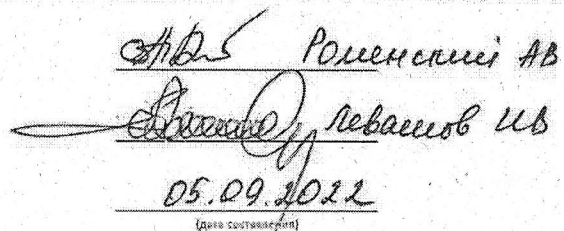 Роменский АВ
Левашов ИВ
05.09.2022
(дата составления)